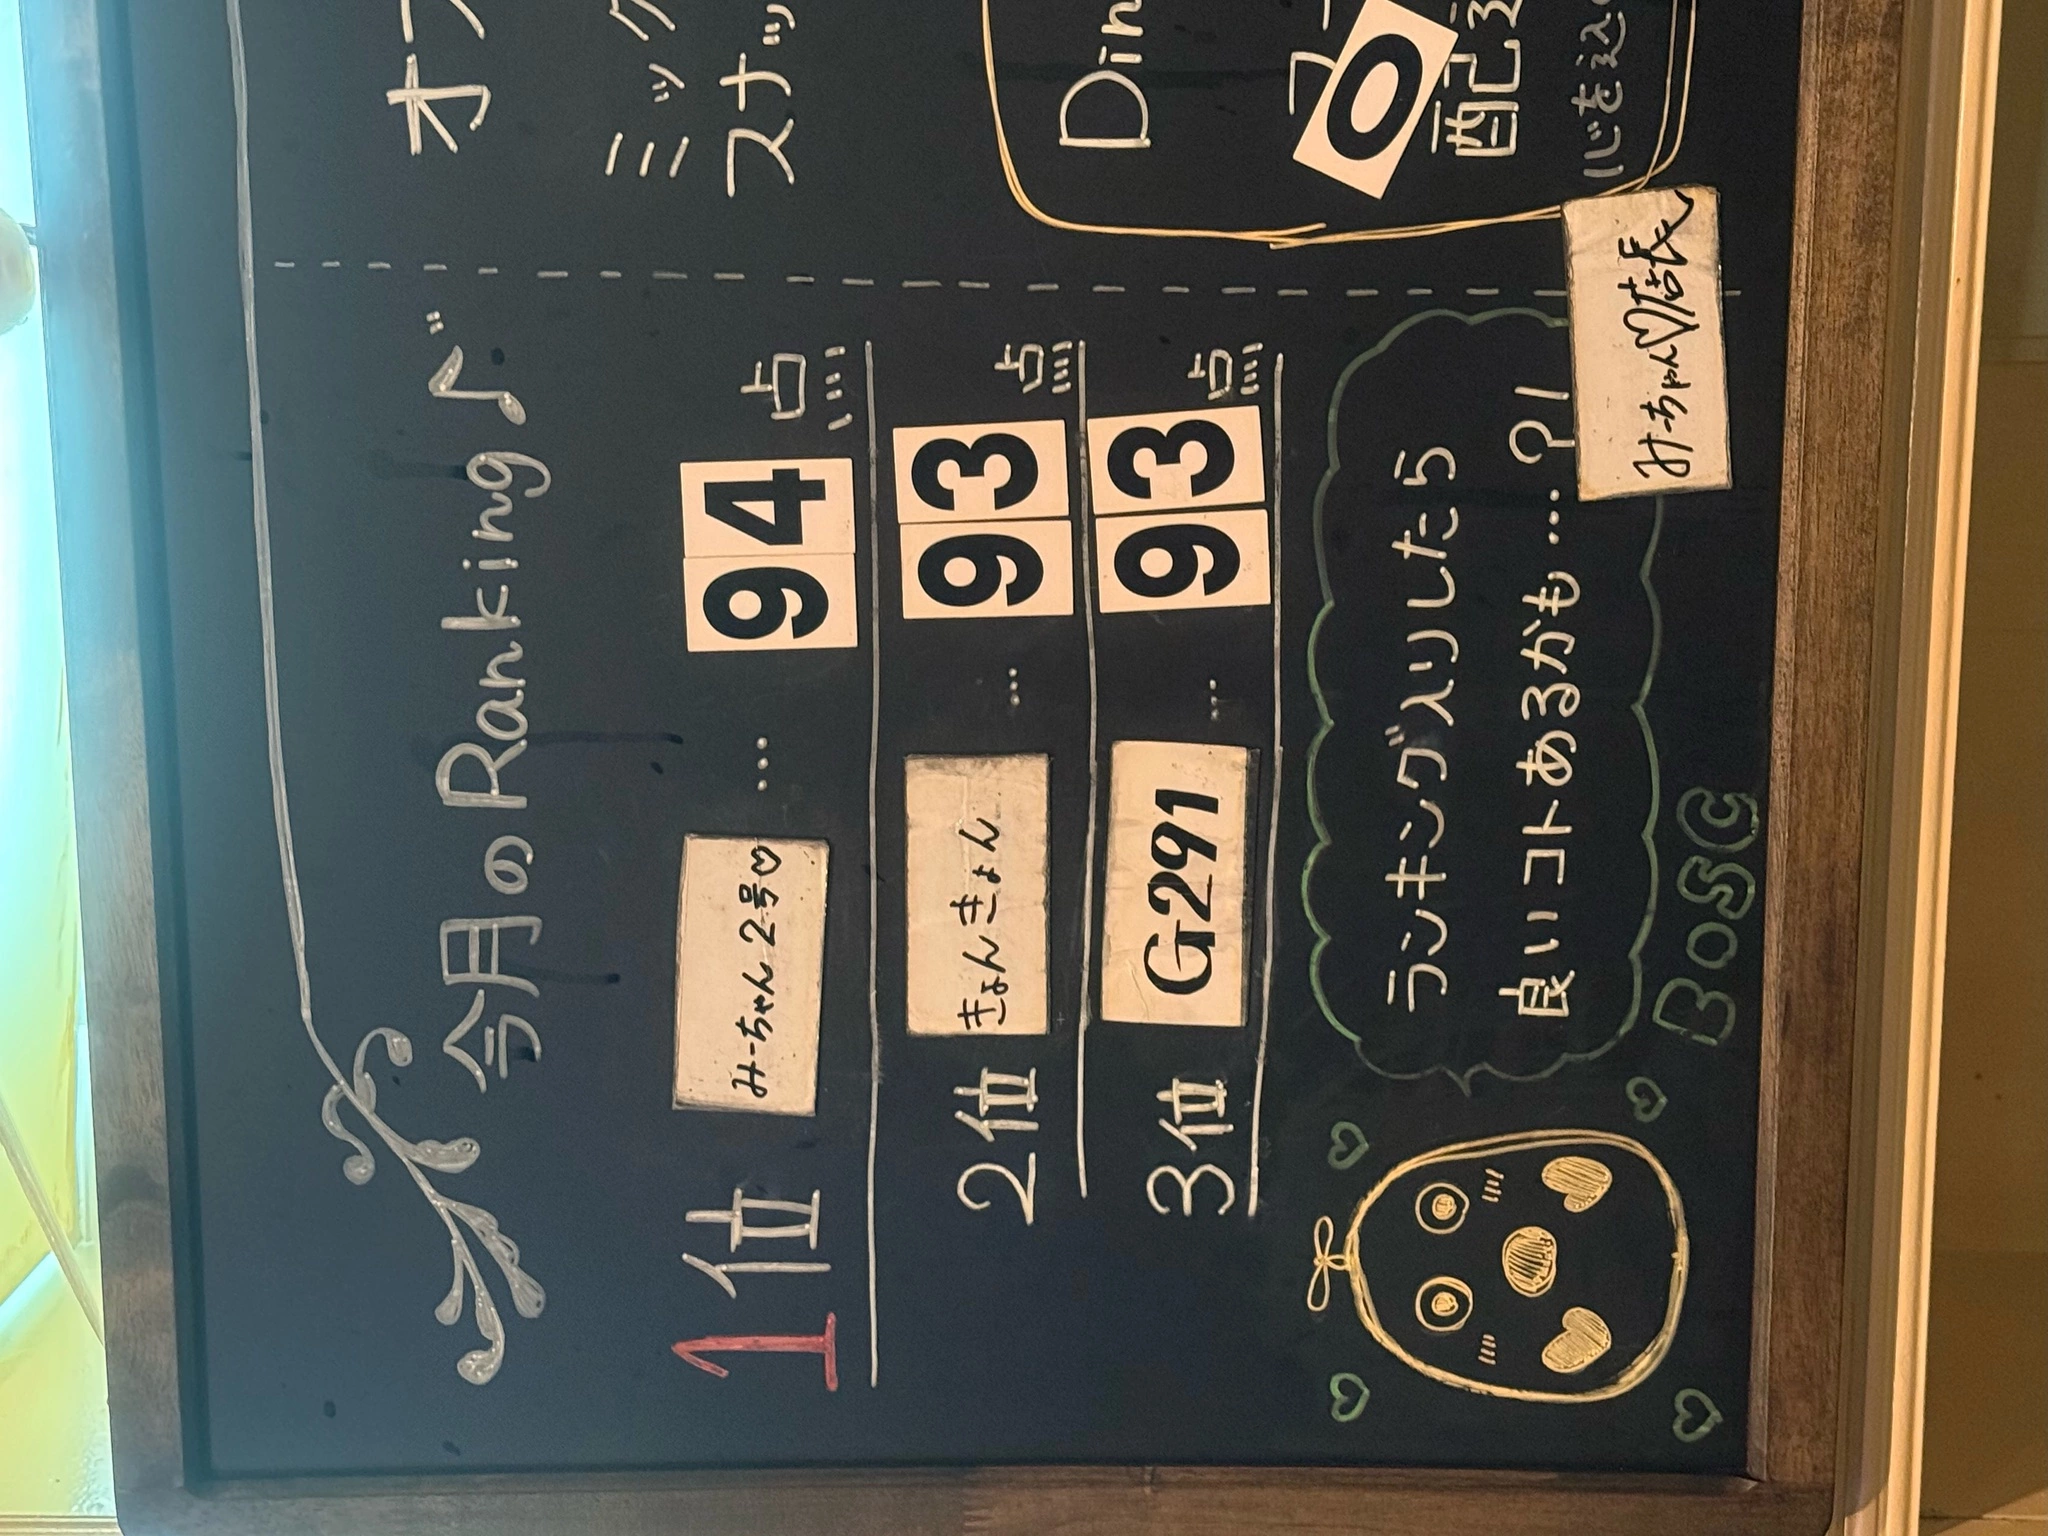 今月のRanking♪
1位 みーちゃん2号♡ … 94点
2位 きょんきょん … 93点
3位 G291 … 93点
ランキング入りしたら
良いコトあるかも…?!
BOSC
みーちゃん♡信長
オ
ミック
スナッ
Din
0
配
心を込